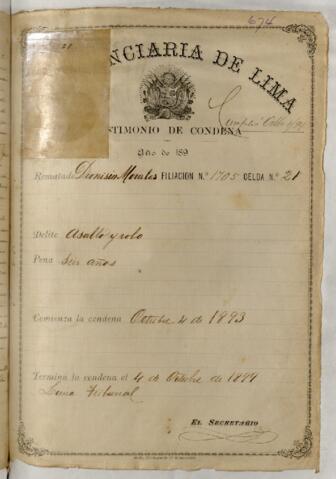 674
21
NCIARIA DE LIMA
Cumplió Octbre 4/99
STIMONIO DE CONDENA
Año de 189
Rematado Dionisio Morales FILIACION N.º 1705 CELDA N.º 21
Delito Asalto y robo
Pena Seis años
Comienza la condena Octubre 4 de 1893
Termina la condena el 4 de Octubre de 1899
Tribunal
EL SECRETARIO